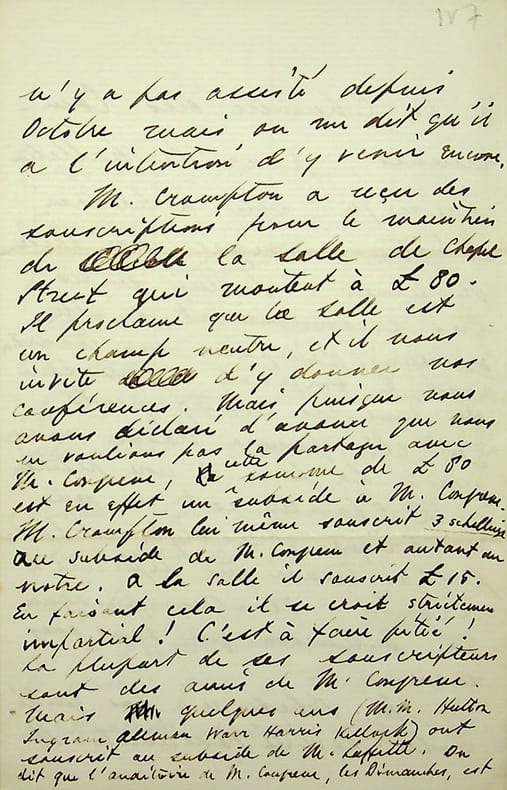 187
n'y a pas assisté depuis
Octobre mais on me dit qu'il
a l'intention d'y venir encore.
M. Crompton a reçu des
souscriptions pour le maintien
de la salle de Chapel
Street qui montent à £ 80.
Il proclame que la salle est
un champ neutre, et il nous
invite d'y donner nos
conférences. Mais puisque nous
avons déclaré d'avance que nous
ne voulions pas la partager avec
M. Congreve, cette somme de £ 80
est en effet un subside à M. Congreve.
M. Crompton lui même souscrit 3 schellings
au subside de M. Congreve et autant au
notre. A la salle il souscrit £ 15.
En faisant cela il se croit strictement
impartial ! C'est à faire pitié !
La plupart de ses souscripteurs
sont des amis de M. Congreve.
Mais quelques uns (M.M. Hutton
Ingram Allman Warr Harris Kellock) ont
souscrit au subside de M. Laffitte. On
dit que l'auditoire de M. Congreve, les Dimanches, est